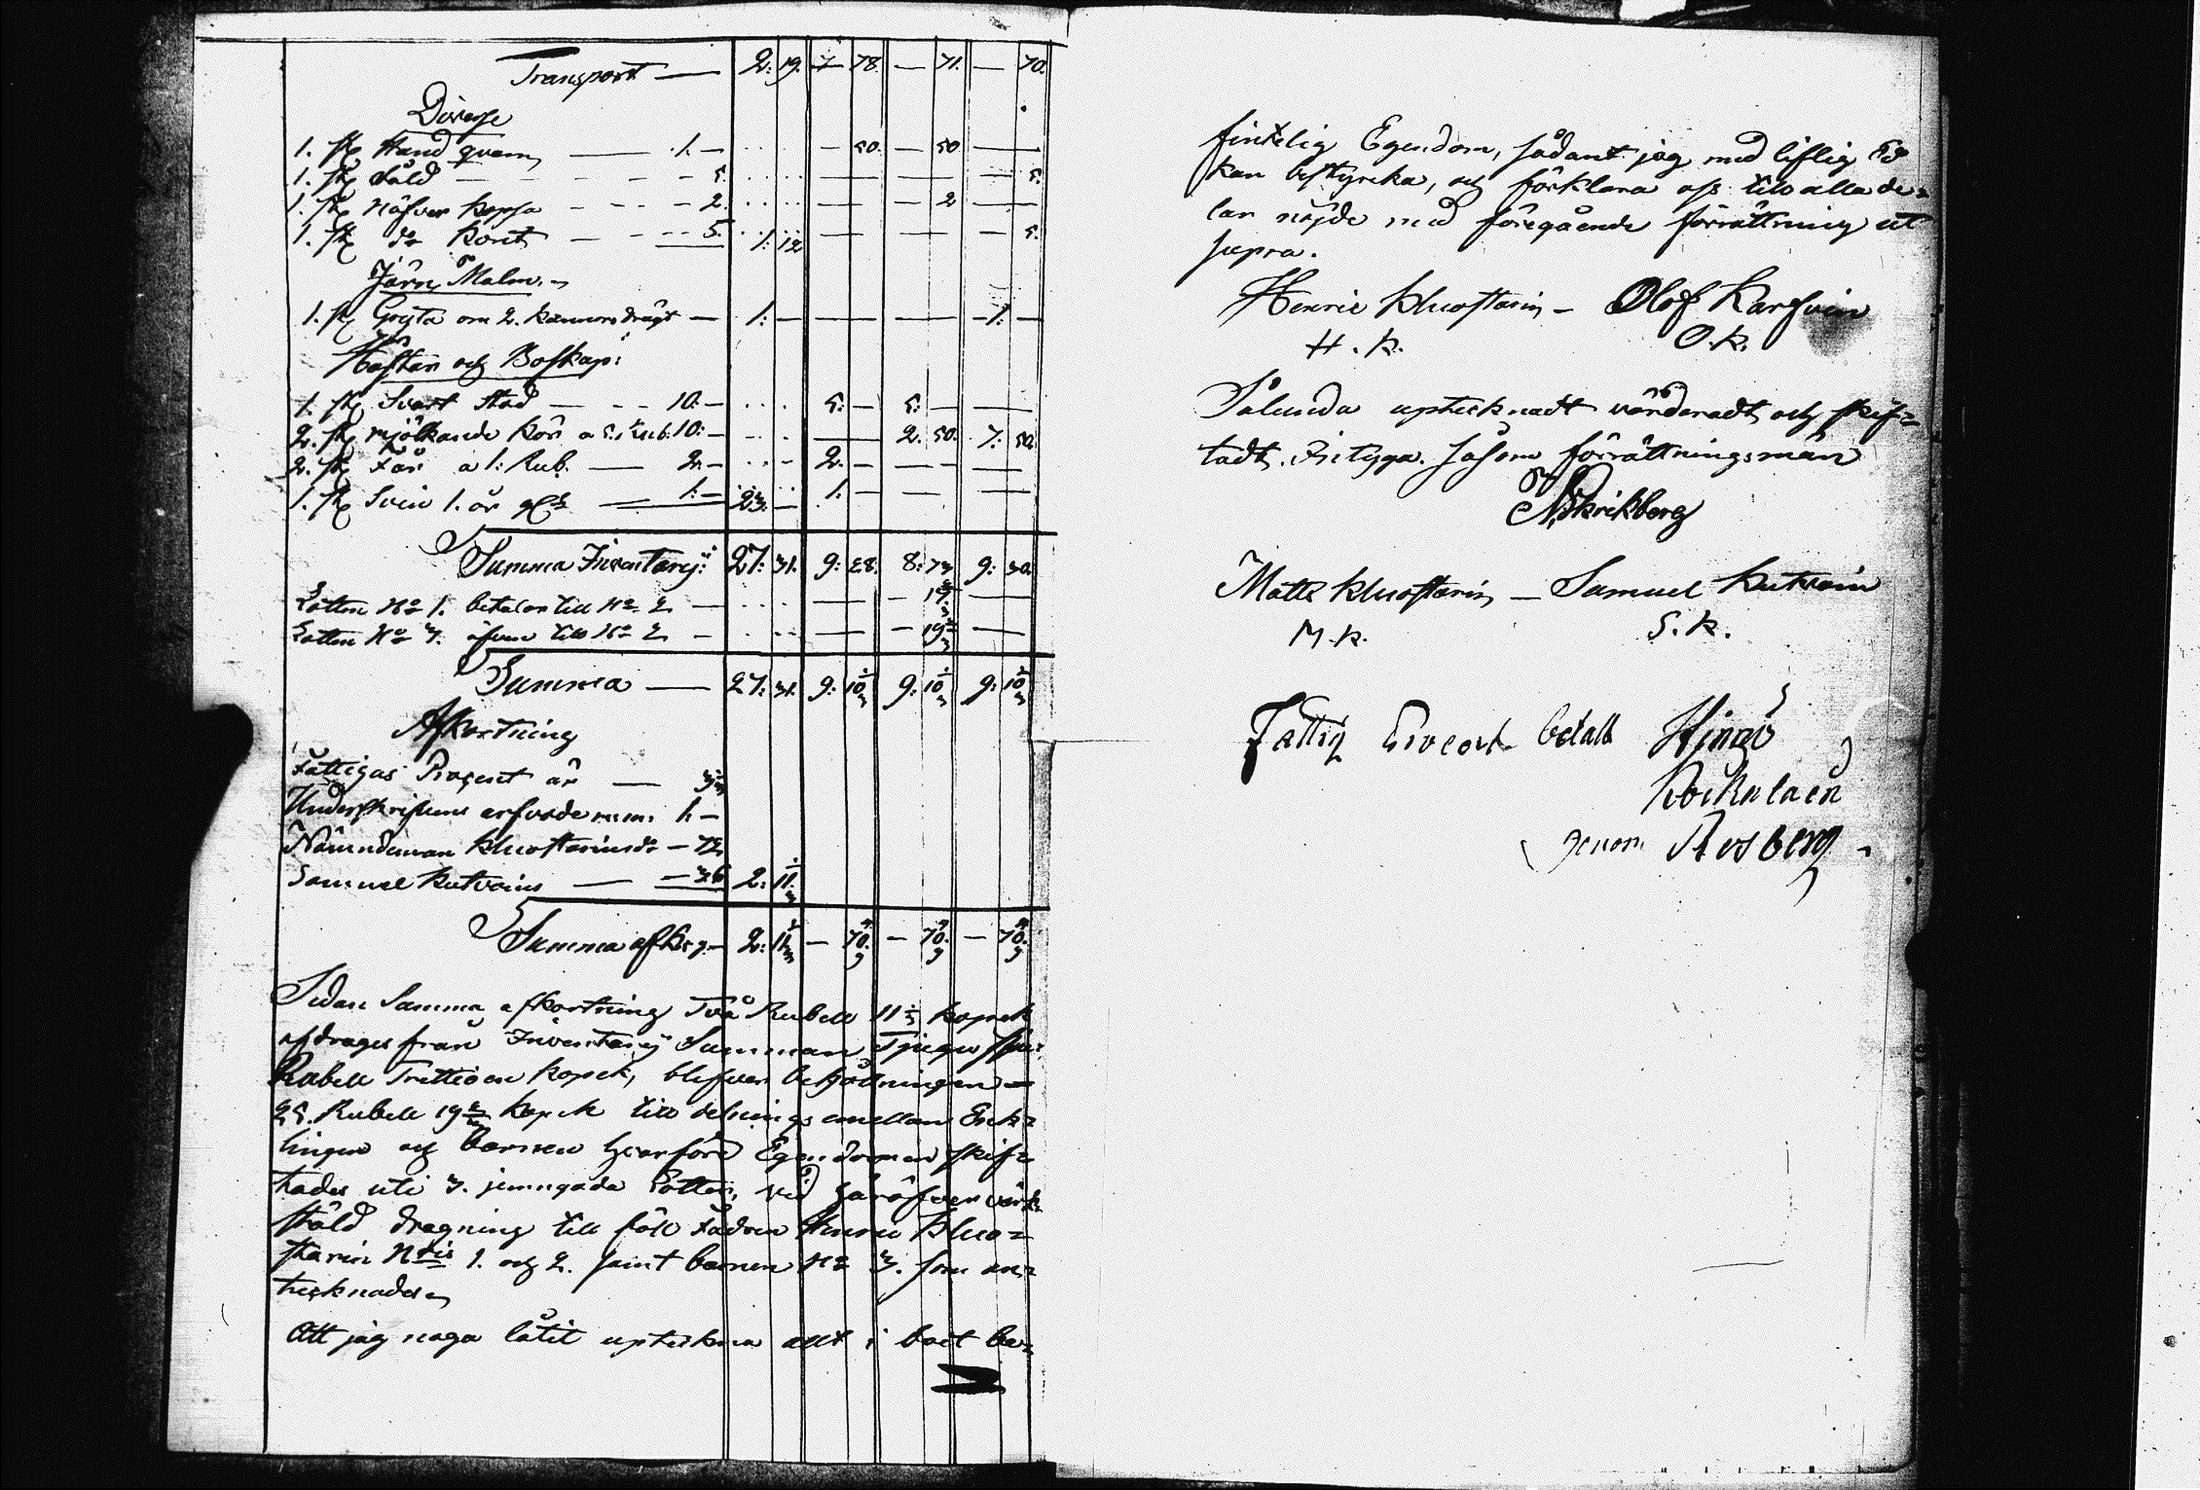 Transport — 2: 19. — 78. — 71. — 70.
Diverse
1. st. Hand quarn — 1. — — 50. — 50 —
1. st. Såld — 5. — — — 5.
1. st. Näfver Kopsa — 2. — — 2 —
1. st. do Kont — 5. 1: 12 — — — 5.
Järn Malm.
1. st. Gryta om 2. kannors drägt — 1: — — — 1: —
Hästar och Boskap:
1. st. Svart Stod — 10: — 5: — 5: — —
2. st. mjölkande Kor a 5. Rub. 10: — — 2. 50. 7: 50.
2. st. Får a 1: Rub. — 2. — 2. — — —
1. st. Svin 1. år — 1: — 23: — 1: — — —
Summa Inventarij: 27: 31. 9: 28. 8: 73 9: 30.
Lotten No 1. betalar till No 2 — — —
Lotten No 3. äfven till No 2 — — —
Summa — 27: 31. 9: 10 9: 10 9: 10
Afkortning
Fattigas Procent är —
Underskrifvens arfvode m.m. 1. —
Nämndeman Kluostarins do — 72
Samuel Kutvoins — 36 2: 11
Summa afkort. 2: 11 — 70. — 70. — 70.
Sedan Samma afkortning Två Rubell 11 kopek
afdrages från Inventarij Summan Tjugu sju
Rubell Trettioen kopek, blifver behållningen —
25. Rubell 19 kopek till delnings emellan Enk=
lingen och barnen hvarföre Egendomen skif=
tades uti 3. jemngoda Lotter, vid häröfver värk=
stäld dragning till föll Fadren Henric Kluo=
starin Ntis 1. och 2. samt barnen No 3. som an=
tecknades
Att jag noga låtit upteckna allt i boet be=
fintelig Egendom, sådant jag med liflig Ed
kan bestyrcka, och förklara oss till alla de=
lar nöjde med föregående förrättning ut
supra.
Henric Kluostarin — Olof Karfvin
H. K. O. K.
Sålunda uptecknadt värderadt och skif=
tadt. Betyga. såsom förrättningsmän
Matts Kluostarin — Samuel Kutvoin
M. K. S. K.
Fattig Procent betalt
genom Rosberg